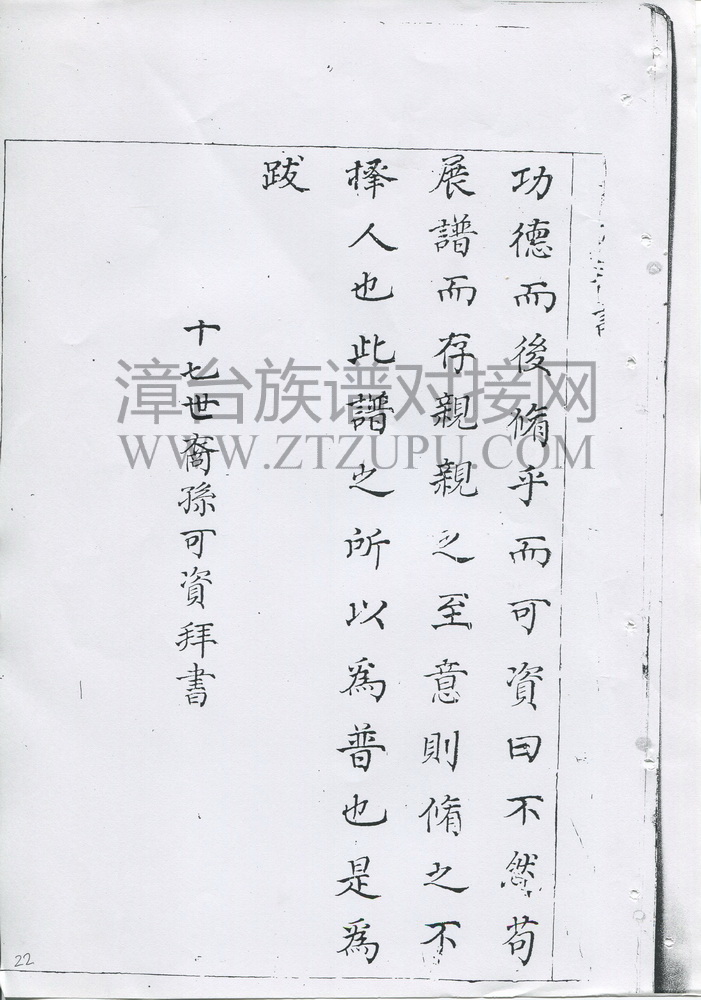 功德而後脩乎而可資曰不然苟
展譜而存親親之至意則脩之不
擇人也此譜之所以為普也是為
跋
十七世裔孫可資拜書
漳台族谱对接网
WWW.ZTZUPU.COM
22